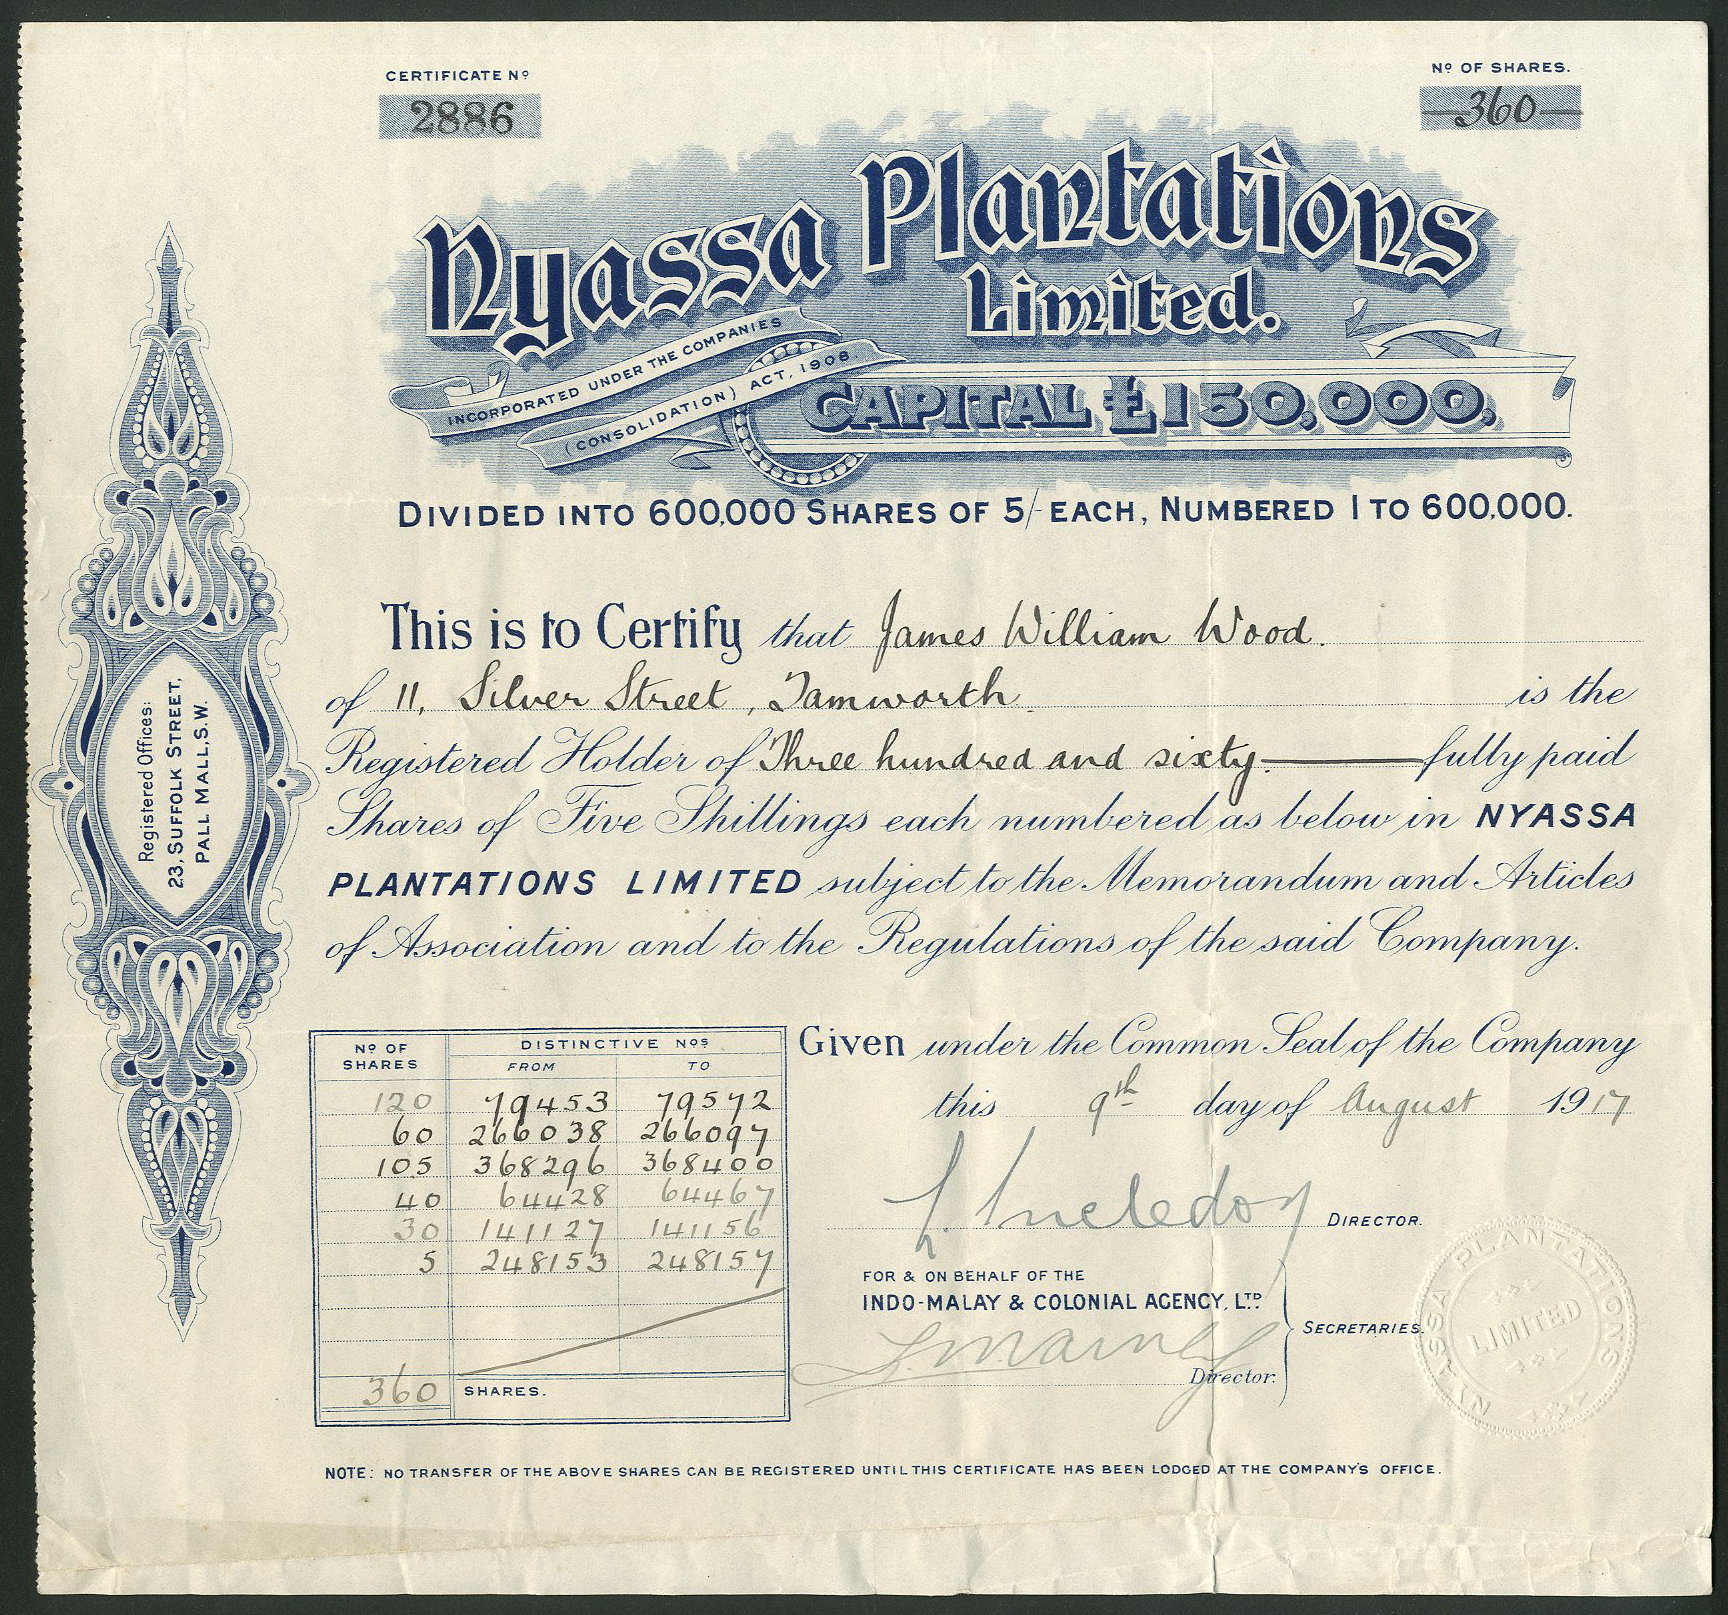 CERTIFICATE Nº
2886
Nº OF SHARES.
360
Nyassa Plantations
Limited.
INCORPORATED UNDER THE COMPANIES
(CONSOLIDATION) ACT, 1908.
CAPITAL £150,000,
DIVIDED INTO 600,000 SHARES OF 5/- EACH, NUMBERED 1 TO 600,000.
Registered Offices:
23, SUFFOLK STREET,
PALL MALL, S.W.
This is to Certify that James William Wood.
of 11, Silver Street, Tamworth is the
Registered Holder of Three hundred and sixty fully paid
Shares of Five Shillings each numbered as below in NYASSA
PLANTATIONS LIMITED subject to the Memorandum and Articles
of Association and to the Regulations of the said Company.
Nº OF SHARES DISTINCTIVE Nºs
FROM TO
120 79453 79572
60 266038 266097
105 368296 368400
40 64428 64467
30 141127 141156
5 248153 248157
360 SHARES.
Given under the Common Seal of the Company
this 9th day of August 1917
DIRECTOR.
FOR & ON BEHALF OF THE
INDO-MALAY & COLONIAL AGENCY, LTD
SECRETARIES.
Director.
NYASSA PLANTATIONS
LIMITED
NOTE: NO TRANSFER OF THE ABOVE SHARES CAN BE REGISTERED UNTIL THIS CERTIFICATE HAS BEEN LODGED AT THE COMPANY'S OFFICE.